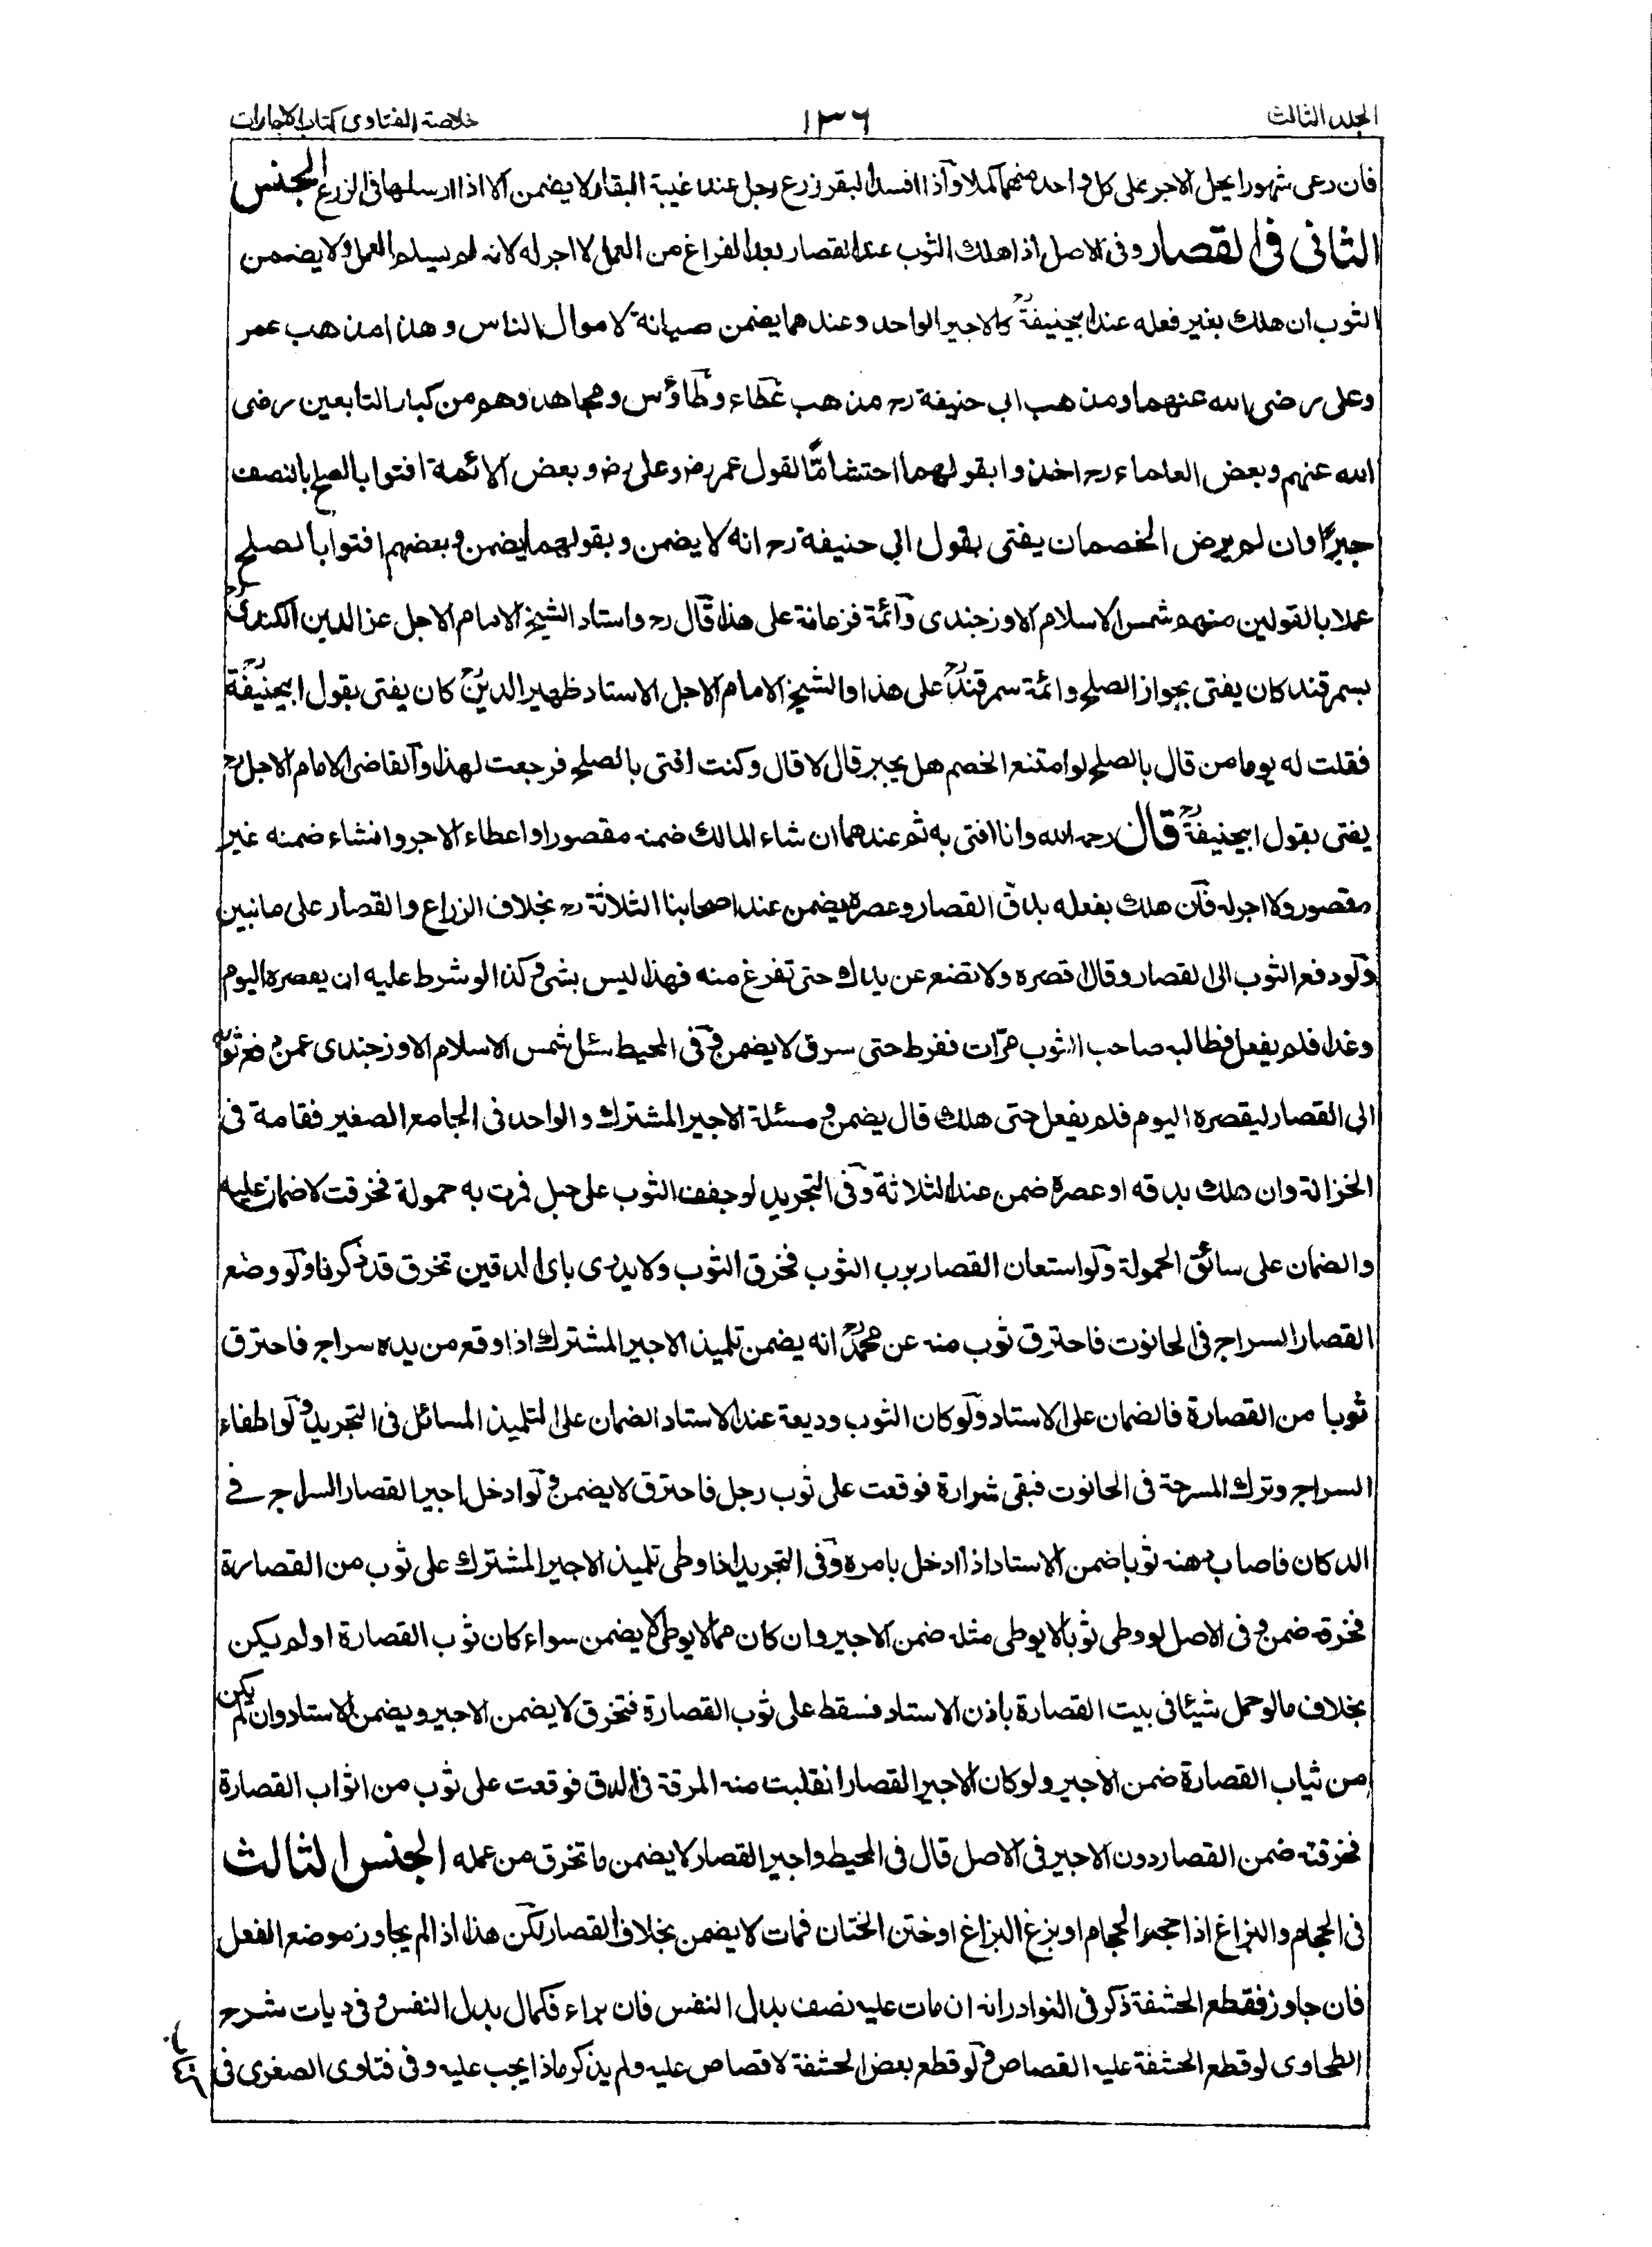 الجلد الثالث
١٣٦
خلاصة الفتاوى كتاب الاجارات
فان رعى شهورا يجل الاجر على كل واحد منهما كملا واذا افسد البقر زرع رجل عند غيبة البقار لا يضمن الا اذا ارسلها فى الزرع الجنس
الثانى فى القصار وفى الاصل اذا هلك الثوب عند القصار بعد الفراغ من العمل لا اجر له لانه لم يسلم العمل ولا يضمن
الثوب ان هلك بغير فعله عند ابيحنيفة رح كالاجير الواحد وعندهما يضمن صيانة لاموال الناس وهذا مذهب عمر
وعلى رضى الله عنهما ومذهب ابى حنيفة رح مذهب عطاء وطاؤس ومجاهد وهم من كبار التابعين رضى
الله عنهم وبعض العلماء رح اخذوا بقولهما احتشاما لقول عمر رض وعلى رض وبعض الائمة افتوا بالصلح بالنصف
جبرًا وان لم يرض الخصمان يفتى بقول ابي حنيفة رح انه لا يضمن وبقولهما يضمن وبعضهم افتوا بالصلح
عملا بالقولين منهم شمس الاسلام الاوزجندى وائمة فرغانة على هذا قال رح واستاد الشيخ الامام الاجل عز الدين الكندى رح
بسمرقند كان يفتى بجواز الصلح وائمة سمرقند رح على هذا والشيخ الامام الاجل الاستاد ظهير الدين رح كان يفتى بقول ابيحنيفة رح
فقلت له يوما من قال بالصلح لو امتنع الخصم هل يجبر قال لا قال وكنت افتى بالصلح فرجعت لهذا والقاضى الامام الاجل رح
يفتى بقول ابيحنيفة رح قال رحمه الله وانا افتى به ثم عندهما ان شاء المالك ضمنه مقصورا واعطاء الاجر وانشاء ضمنه غير
مقصور ولا اجر له فان هلك بفعله بدق القصار وعصره يضمن عند اصحابنا الثلاثة رح بخلاف الزراع والقصار على مانبين
ولو دفع الثوب الى القصار وقال اقصره ولا تضع عن يدك حتى تفرغ منه فهذا ليس بشئ وكذا لو شرط عليه ان يعصره اليوم
وغدا فلم يفعل فطالبه صاحب الثوب مرّات ففرط حتى سرق لا يضمن وفى المحيط سئل شمس الاسلام الاوزجندى عمن دفع ثوبه
الى القصار ليقصره اليوم فلم يفعل حتى هلك قال يضمن ومسئلة الاجير المشترك والواحد فى الجامع الصغير فقامة فى
الخزانة وان هلك بدقه او عصره ضمن عند الثلاثة وفى التجريد لو جفف الثوب على حبل فمرت به حمولة فخرقت لا ضمان عليه
والضمان على سائق الحمولة ولو استعان القصار برب الثوب فخرق الثوب ولا يدرى باى الدقين تخرق قد ذكرنا ولو وضع
القصار السراج فى الحانوت فاحترق ثوب منه عن محمد رح انه يضمن تلميذ الاجير المشترك اذا وقع من يده سراج فاحترق
ثوبا من القصارة فالضمان على الاستاد ولو كان الثوب وديعة عند الاستاد الضمان على التلميذ المسائل فى التجريد ولو اطفاء
السراج وترك المسرجة فى الحانوت فبقى شرارة فوقعت على ثوب رجل فاحترق لا يضمن ولو ادخل اجير القصار السراج فى
الدكان فاصاب دهنه ثوبا ضمن الاستاد اذا ادخل بامره وفى التجريد اذا وطى تلميذ الاجير المشترك على ثوب من القصارة
فخرقه ضمن وفى الاصل لو وطى ثوبا لا يوطى مثله ضمن الاجير وان كان مما لا يوطى لا يضمن سواء كان ثوب القصارة او لم يكن
بخلاف مالو حمل شيئا فى بيت القصارة باذن الاستاد فسقط على ثوب القصارة فتخرق لا يضمن الاجير ويضمن الاستاد وان لم يكن
من ثياب القصارة ضمن الاجير ولو كان الاجير القصار انقلبت منه المرقة فى الدق فوقعت على ثوب من اثواب القصارة
فخرقته ضمن القصار دون الاجير فى الاصل قال فى المحيط واجير القصار لا يضمن ما تخرق من عمله الجنس الثالث
فى الحجام والبزاغ اذا حجم الحجام او بزغ البزاغ او ختن الختان فمات لا يضمن بخلاف القصار لكن هذا اذا لم يجاوز موضع الفعل
فان جاوز فقطع الحشفة ذكر فى النوادر انه ان مات عليه نصف بدل النفس فان براء فكمال بدل النفس وفى ديات شرح
الطحاوى لو قطع الحشفة عليه القصاص ولو قطع بعض الحشفة لا قصاص عليه ولم يذكر ماذا يجب عليه وفى فتاوى الصغرى فى